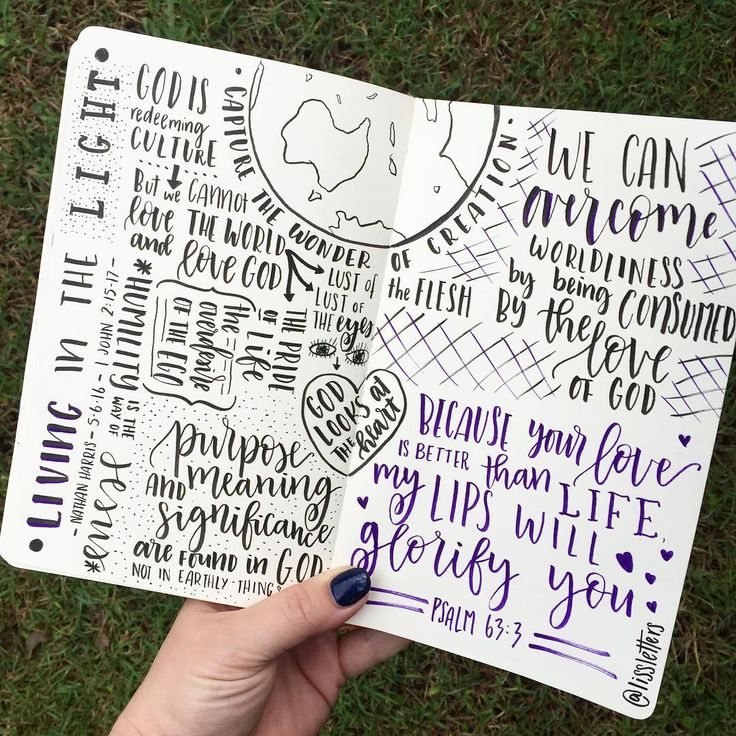 LIVING IN THE LIGHT
- NATHAN HARRIS - 5·6·16 - 1 JOHN 2:15-17 -
GOD IS
redeeming
CULTURE
But we CANNOT
love THE WORLD
and love GOD
LUST of
the FLESH
LUST OF
THE eyes
THE PRIDE
of Life
{the overdose
OF THE EGO}
*HUMILITY
IS THE
WAY OF
Jesus*
• CAPTURE THE WONDER OF CREATION •
GOD
LOOKS at
THE heart
purpose
meaning
AND
significance
are found in GOD
NOT IN EARTHLY THINGS
WE CAN
overcome
WORLDLINESS
by being CONSUMED
BY the love
OF GOD
BECAUSE your love
IS BETTER than LIFE,
my LIPS WILL
glorify you
PSALM 63:3
@lissletters